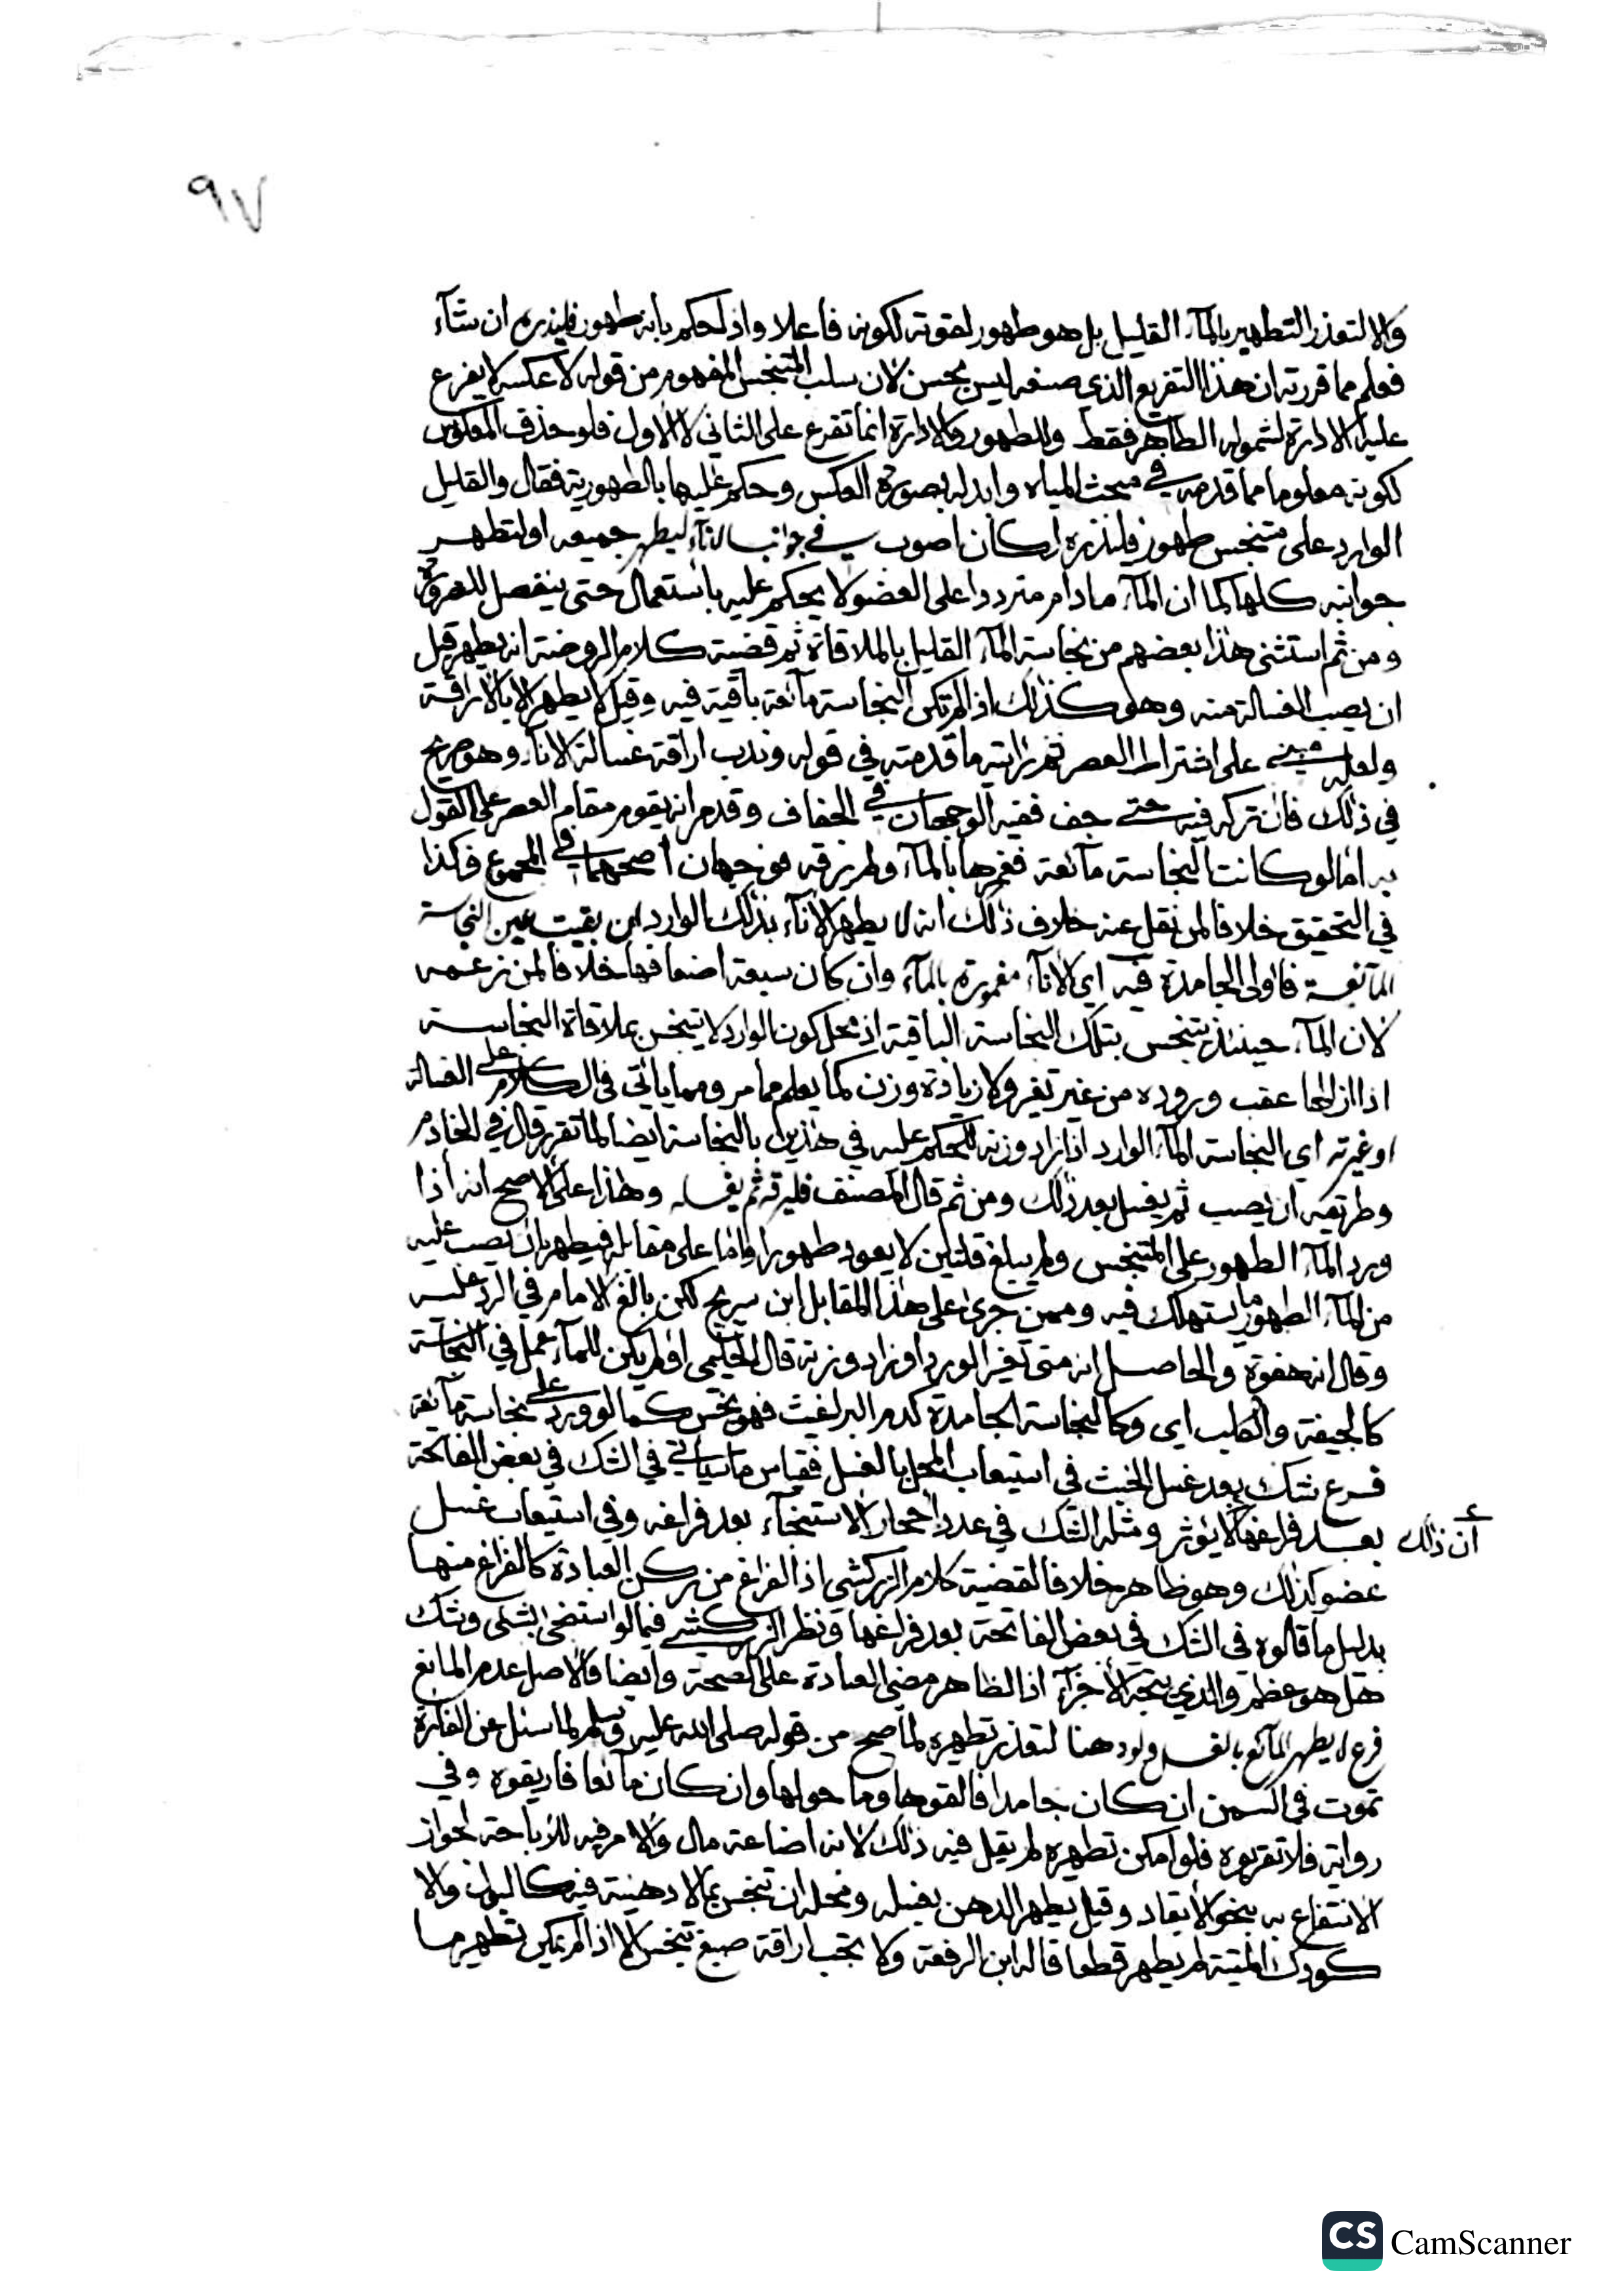 ٩٧
والا لتعذر التطهير بالماء القليل بل هو طهور لقوته لكونه فاعلا واذا حكم بانه طهور فليدره ان شاء
فعلم مما قررته ان هذا التفريع الذي صنعه ليس بحسن لان سلب المتنجس المفهوم من قوله لا عكسه لا يفرع
عليه الادارة لشموله الطاهر فقط والطهور والادارة انما تفرع على الثاني لا الاول فلو حذف المعكوس
لكونه معلوما مما قدمه في مبحث المياه وابدله بصورة العكس وحكم عليها بالطهورية فقال والقليل
الوارد على متنجس طهور فليدره لكان اصوب في جوانب الاناء ليطهر جميعه او لتطهر
جوانبه كلها كما ان الماء ما دام مترددا على العضو لا يحكم عليه باستعمال حتى ينفصل للضرورة
ومن ثم استثنى هذا بعضهم من نجاسة الماء القليل بالملاقاة ثم قضية كلام الروضة انه يطهر قبل
ان يصب الغسالة منه وهو كذلك اذا لم تكن النجاسة مائعة باقية فيه وقيل لا يطهر الا بالاراقة
ولعله مبني على اشتراط العصر ثم رايته ما قدمته في قوله وندب اراقة غسالة الاناء وهو صريح
في ذلك فان تركه فيه حتى جف ففيه الوجهان في الجفاف وقدم انه يقوم مقام العصر على القول
به اما لو كانت النجاسة مائعة فغمرها بالماء ولم يرقه فوجهان اصحهما في المجموع وكذا
في التحقيق خلافا لمن نقل عنه خلاف ذلك انه لا يطهر الاناء بذلك الوارد ان بقيت عين النجاسة
المائعة فاولى الجامدة فيه اي الاناء مغمورة بالماء وان كان سبعة اضعافها خلافا لمن زعمه
لان الماء حينئذ يتنجس بتلك النجاسة الباقية اذ محل كون الوارد لا يتنجس بملاقاة النجاسة
اذا ازالها عقب وروده من غير تغير ولا زيادة وزن كما يعلم مما مر ومما ياتي في الكلام على الغسالة
او غيرته اي النجاسة الماء الوارد اذا زاد وزنه للحكم عليه في هذين بالنجاسة ايضا لما تقرر قال في الخادم
وطريقه ان يصب ثم يغسل بعد ذلك ومن ثم قال المصنف فليرقه ثم يغسله وهذا على الاصح انه اذا
ورد الماء الطهور على المتنجس ولم يبلغ قلتين لا يعود طهورا واما على مقابله فيطهر بان يصب عليه
من الماء الطهور ما يستهلك فيه وممن جرى على هذا المقابل ابن سريج لكن بالغ الامام في الرد عليه
وقال انه هفوة والحاصل انه متى تغير الورد او زاد وزنه قال الحليمي او لم يكن للماء عمل في النجاسة
كالجيفة والكلب اي وكالنجاسة الجامدة كدم البراغيث فهو نجس كما لو ورد على نجاسة مائعة
فرع شك بعد غسل الخبث في استيعاب المحل بالغسل فقياس ما سياتي في الشك في بعض الفاتحة
أن ذلك
بعد فراغها لا يؤثر ومثله الشك في عدد احجار الاستنجاء بعد فراغه وفي استيعاب غسل
عضو كذلك وهو ظاهر خلافا لقضية كلام الزركشي اذ الفراغ من ركن العبادة كالفراغ منها
بدليل ما قالوه في الشك في بعض الفاتحة بعد فراغها ونظر الزركشي فيما لو استنجى بشئ وشك
هل هو عظم والذي يتجه الاجزاء اذ الظاهر مضي العبادة على الصحة وايضا فالاصل عدم المانع
فرع لا يطهر المائع بالغسل ولو دهنا لتعذر تطهيره لما صح من قوله صلى الله عليه وسلم لما سئل عن الفارة
تموت في السمن ان كان جامدا فالقوها وما حولها وان كان مائعا فاريقوه وفي
رواية فلا تقربوه فلو امكن تطهيره لم يقل فيه ذلك لانه اضاعة مال والامر فيه للاباحة لجواز
الانتفاع به بنحو الايقاد وقيل يطهر الدهن بغسله ومحله ان تنجس بما لا دهنية فيه كالبول والا
كودك الميتة لم يطهر قطعا قاله ابن الرفعة ولا تجب اراقة صبغ تنجس الا اذا لم يمكن تطهير ما
CS CamScanner